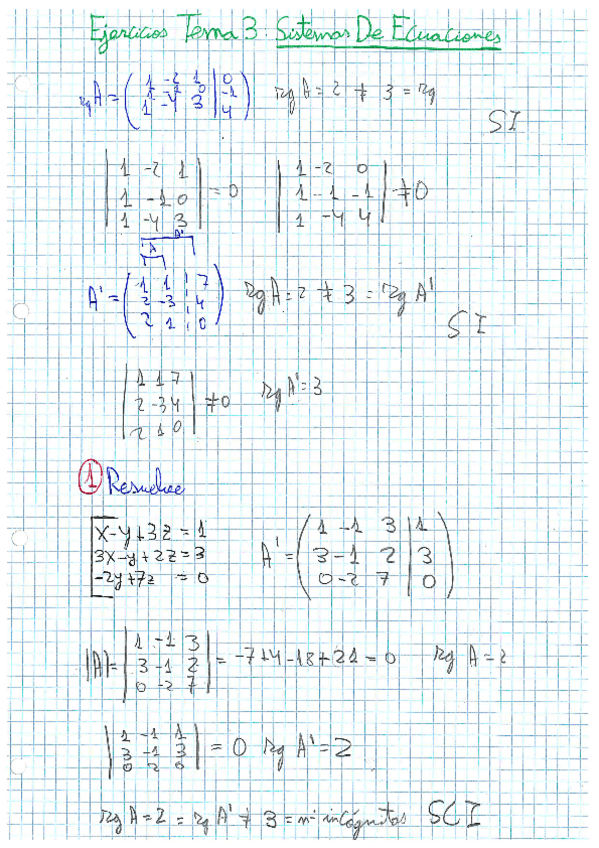 Ejercicios Tema 3: Sistemas De Ecuaciones
rg A = ( 1 -2 1 | 0
1 -1 0 | -1
1 -4 3 | 4 ) rg A = 2 ≠ 3 = rg
SI
| 1 -2 1
1 -1 0
1 -4 3 | = 0
| 1 -2 0
1 -1 -1
1 -4 4 | ≠ 0
A A'
A' = ( 1 1 | 7
2 -3 | 4
2 1 | 0 ) Rg A = 2 ≠ 3 = Rg A'
SI
| 1 1 7
2 -3 4
2 1 0 | ≠ 0 rg A' = 3
1 Resuelve
x-y+3z = 1
3x-y+2z = 3
-2y+7z = 0
A' = ( 1 -1 3 | 1
3 -1 2 | 3
0 -2 7 | 0 )
|A| = | 1 -1 3
3 -1 2
0 -2 7 | = -7+4-18+21 = 0 rg A = 2
| 1 -1 1
3 -1 3
0 2 0 | = 0 rg A' = 2
rg A = 2 = rg A' ≠ 3 = nº incógnitas SCI